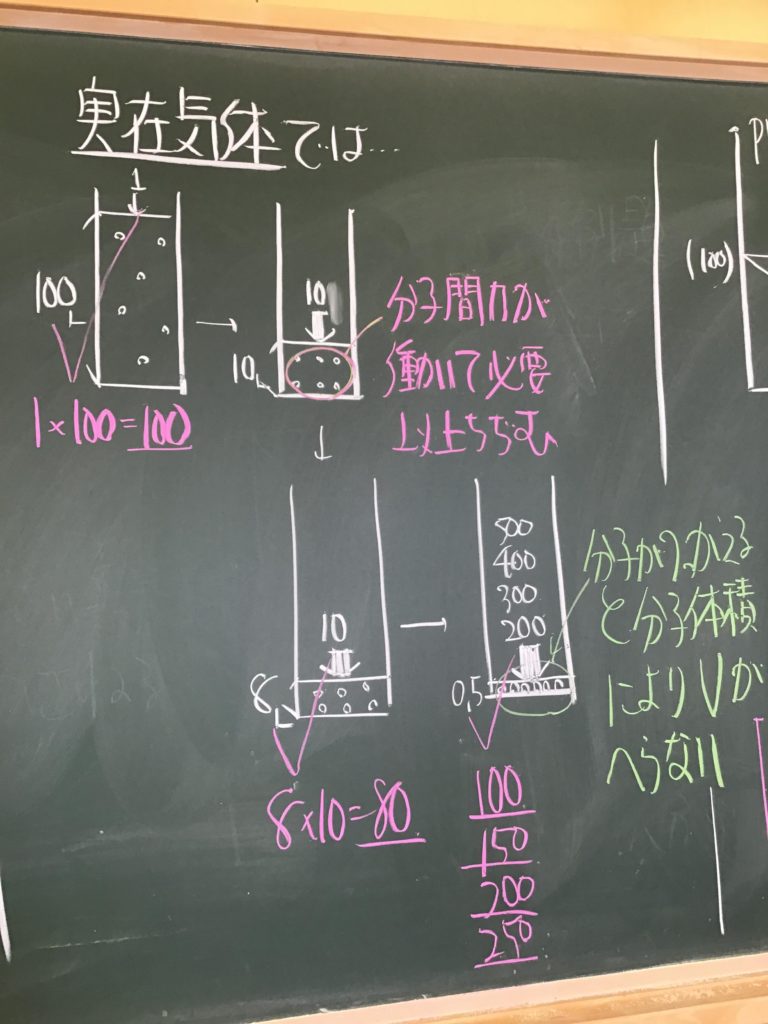 実在気体では…
1
100L
1×100=100
10
10L
分子間力が
働いて必要
以上ちぢむ
10
8L
8×10=80
500
400
300
200
0.5L
100
150
200
250
分子がつかえる
と分子体積
によりVが
へらない
P
(100)